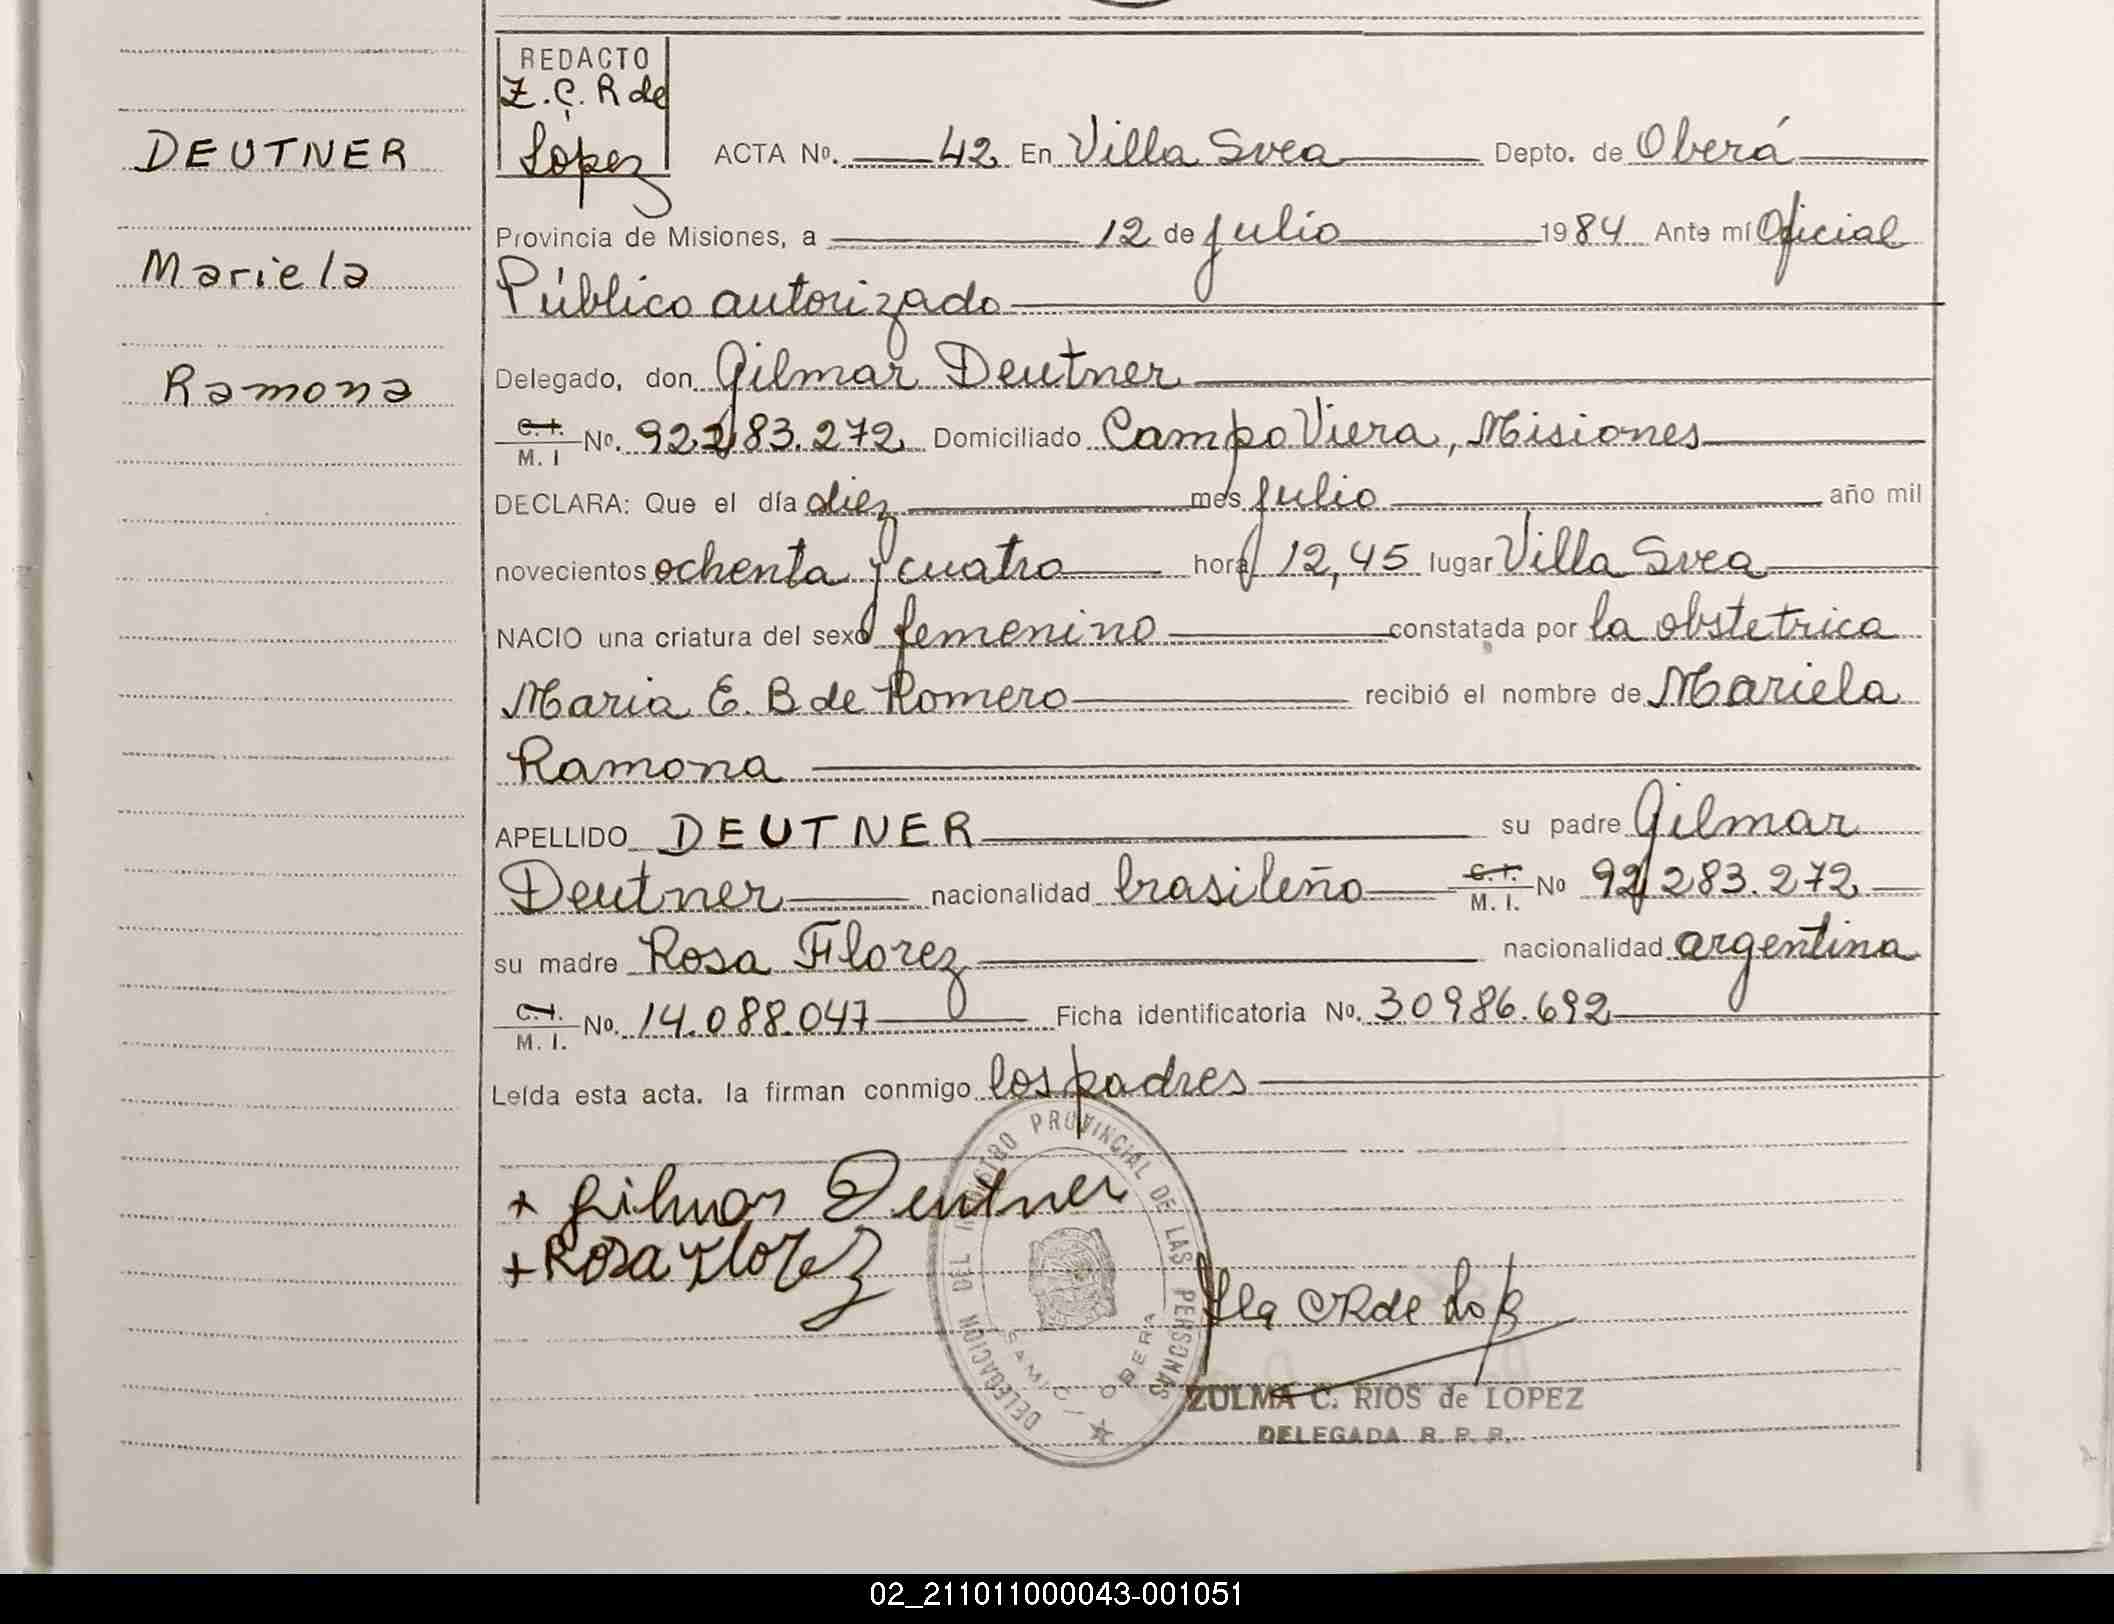 DEUTNER
Mariela
Ramona
REDACTO
Z. C. R de
López
ACTA No. 42 En Villa Svea Depto. de Oberá
Provincia de Misiones, a 12 de julio 1984 Ante mí Oficial
Público autorizado
Delegado, don Gilmar Deutner
C.I. M. I No. 92.283.272 Domiciliado Campo Viera, Misiones
DECLARA: Que el día diez mes julio año mil
novecientos ochenta y cuatro hora 12,45 lugar Villa Svea
NACIO una criatura del sexo femenino constatada por la obstetrica
Maria E. B de Romero recibió el nombre de Mariela
Ramona
APELLIDO DEUTNER su padre Gilmar
Deutner nacionalidad brasileño C.I. M. I. No 92.283.272
su madre Rosa Florez nacionalidad argentina
C.I. M. I. No. 14.088.047 Ficha identificatoria No. 30986.692
Leída esta acta. la firman conmigo los padres
+ Gilmar Deutner
+ Rosa Florez
DELEGACION DEL REGISTRO PROVINCIAL DE LAS PERSONAS
SAMIC / OBERA
ZULMA C. RIOS de LOPEZ
DELEGADA R. P. P.
02_211011000043-001051